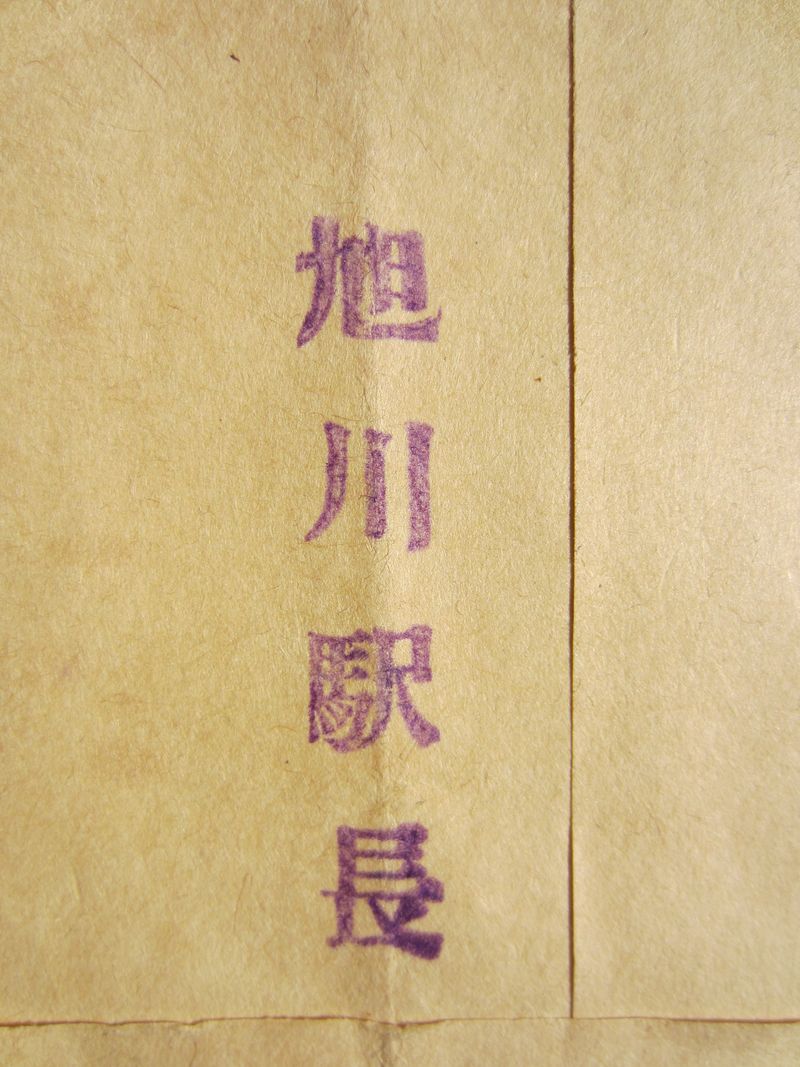 旭川駅長